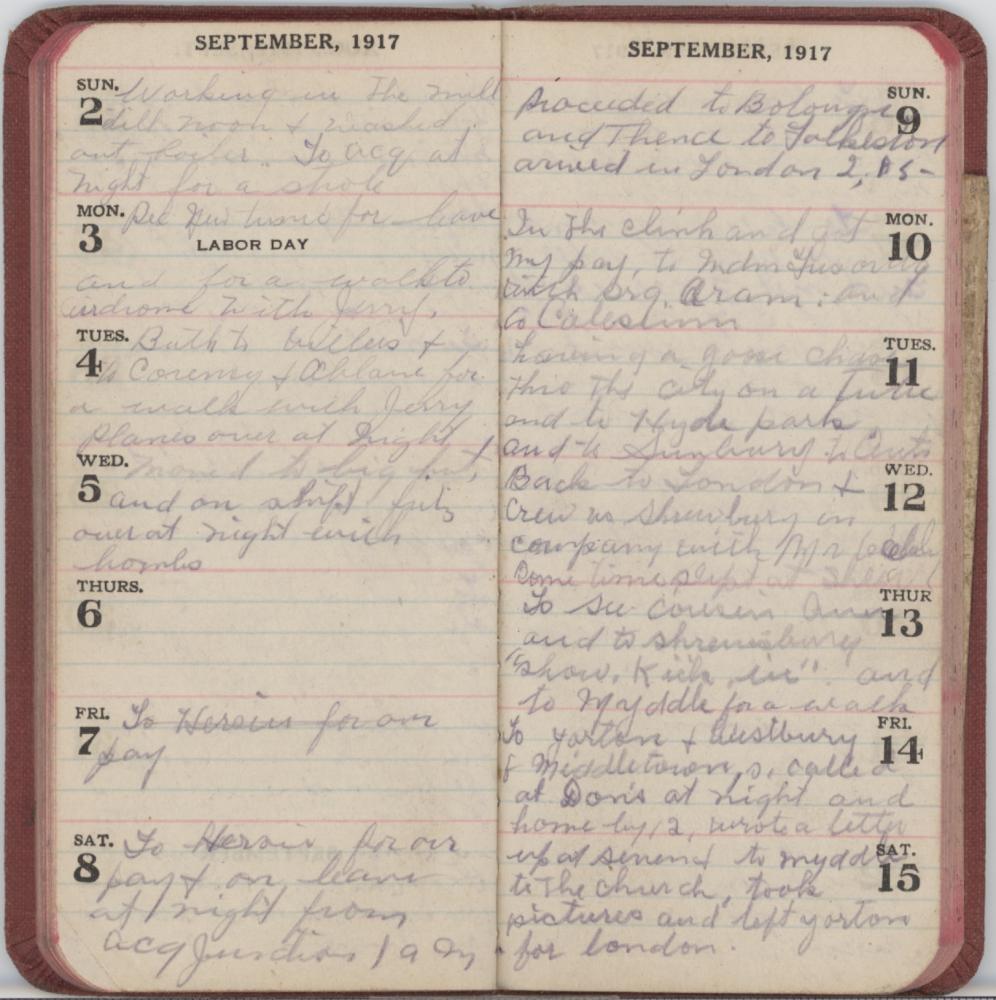 SEPTEMBER, 1917
SUN.
2
Working in the mill
till noon & washed
out, To acq at
night for a stroll
MON.
3
Rec new issue for leave
LABOR DAY
and for a walk to
airdrome with Jerry.
TUES.
4
Bath to Villers &
to &
a walk with Jerry
planes over at night
WED.
5
Moved to big hut,
and on shift fritz
over at night with
bombs
THURS.
6
FRI.
7
To Hersin for our
pay
SAT.
8
To Hersin for our
pay & on leave
at night from
acq Junction 1 a m
SEPTEMBER, 1917
SUN.
9
proceeded to Bolougne
and Thence to Folkeston
arrived in London 2,
MON.
10
In the clink and got
my pay, to
with Srg. Oram: and
to
TUES.
11
having a goose chase
thro the city on a
and to Hyde park
and to Sunbury to Aunts
WED.
12
Back to London &
Crew us Shrewbury in
company with Mr
Come time slept at
THUR
13
To see cousin
and to shrewsbury
"show, Kick, in". and
to Myddle for a walk
FRI.
14
To yorton & Westbury
& Middletown, s, called
at Don's at night and
home by 12, wrote a letter
SAT.
15
up at seven & to myddle
to The church, took
pictures and left yorton
for london.